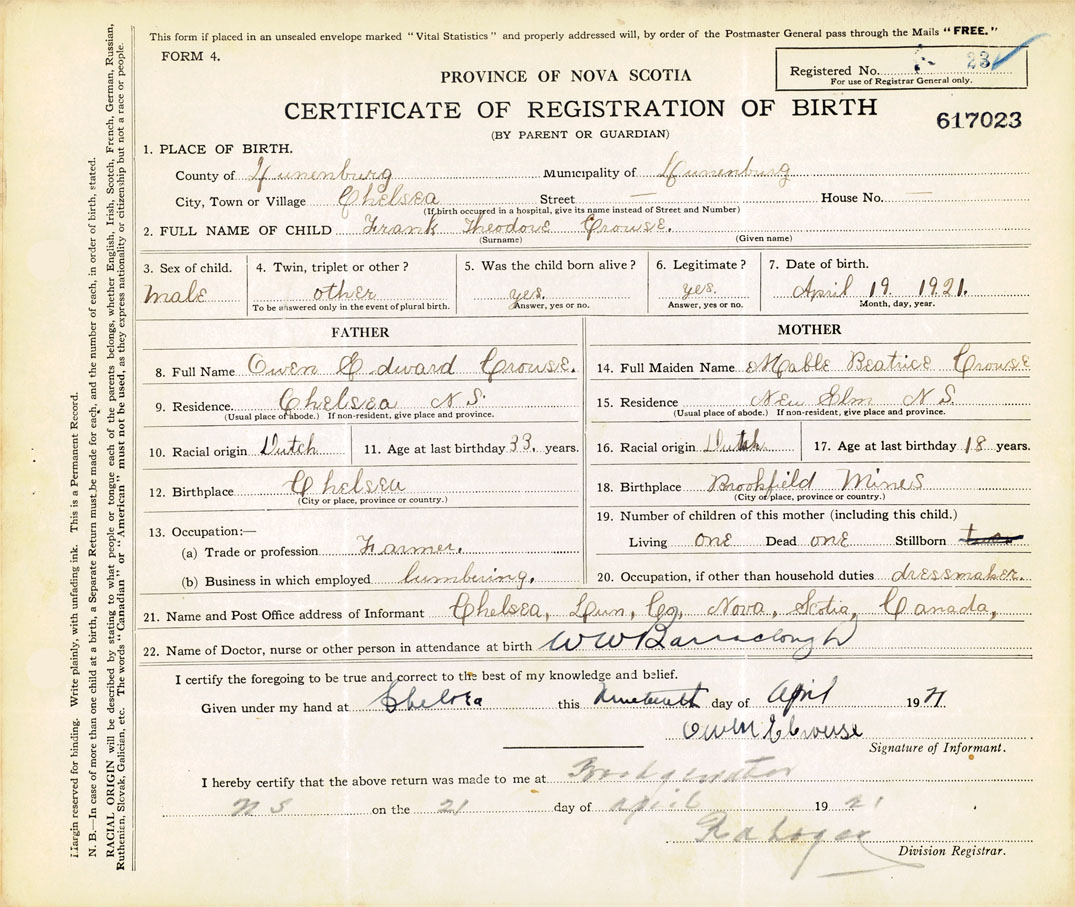 This form if placed in an unsealed envelope marked "Vital Statistics" and properly addressed will, by order of the Postmaster General pass through the Mails "FREE."
FORM 4.
Registered No. 23
For use of Registrar General only.
PROVINCE OF NOVA SCOTIA
CERTIFICATE OF REGISTRATION OF BIRTH
617023
(BY PARENT OR GUARDIAN)
1. PLACE OF BIRTH.
County of Lunenburg Municipality of Lunenburg
City, Town or Village Chelsea Street — House No. —
(If birth occurred in a hospital, give its name instead of Street and Number)
2. FULL NAME OF CHILD Frank Theodore Crouse.
(Surname) (Given name)
3. Sex of child. male
4. Twin, triplet or other? other
To be answered only in the event of plural birth.
5. Was the child born alive? yes.
Answer, yes or no.
6. Legitimate? yes.
Answer, yes or no.
7. Date of birth. April 19. 1921.
Month, day, year.
FATHER
8. Full Name Owen Edward Crouse.
9. Residence. Chelsea N.S.
(Usual place of abode.) If non-resident, give place and province.
10. Racial origin Dutch 11. Age at last birthday 33. years.
12. Birthplace Chelsea
(City or place, province or country.)
13. Occupation:—
(a) Trade or profession Farmer.
(b) Business in which employed lumbering.
MOTHER
14. Full Maiden Name Mable Beatrice Crouse
15. Residence New Elm N.S.
(Usual place of abode.) If non-resident, give place and province.
16. Racial origin Dutch 17. Age at last birthday 18 years.
18. Birthplace Brookfield Mines
(City or place, province or country.)
19. Number of children of this mother (including this child.)
Living one Dead one Stillborn
20. Occupation, if other than household duties dressmaker.
21. Name and Post Office address of Informant Chelsea, Lun, Co, Nova, Scotia, Canada,
22. Name of Doctor, nurse or other person in attendance at birth W W Barraclough
I certify the foregoing to be true and correct to the best of my knowledge and belief.
Given under my hand at Chelsea this nineteenth day of April 1921.
Owen E Crouse
Signature of Informant.
I hereby certify that the above return was made to me at Bridgewater
NS on the 21 day of April 1921
Division Registrar.
Margin reserved for binding. Write plainly, with unfading ink. This is a Permanent Record.
N. B.—In case of more than one child at a birth, a Separate Return must be made for each, and the number of each, in order of birth, stated.
RACIAL ORIGIN will be described by stating to what people or tongue each of the parents belongs, whether English, Irish, Scotch, French, German, Russian,
Ruthenian, Slovak, Galician, etc. The words "Canadian" or "American" must not be used, as they express nationality or citizenship but not a race or people.